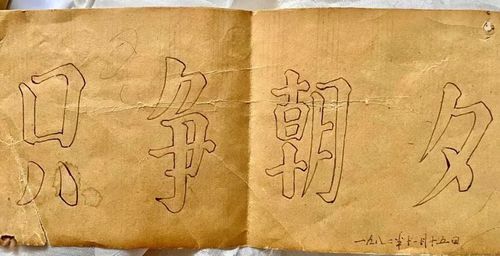 只争朝夕
一九八二年十一月十五日